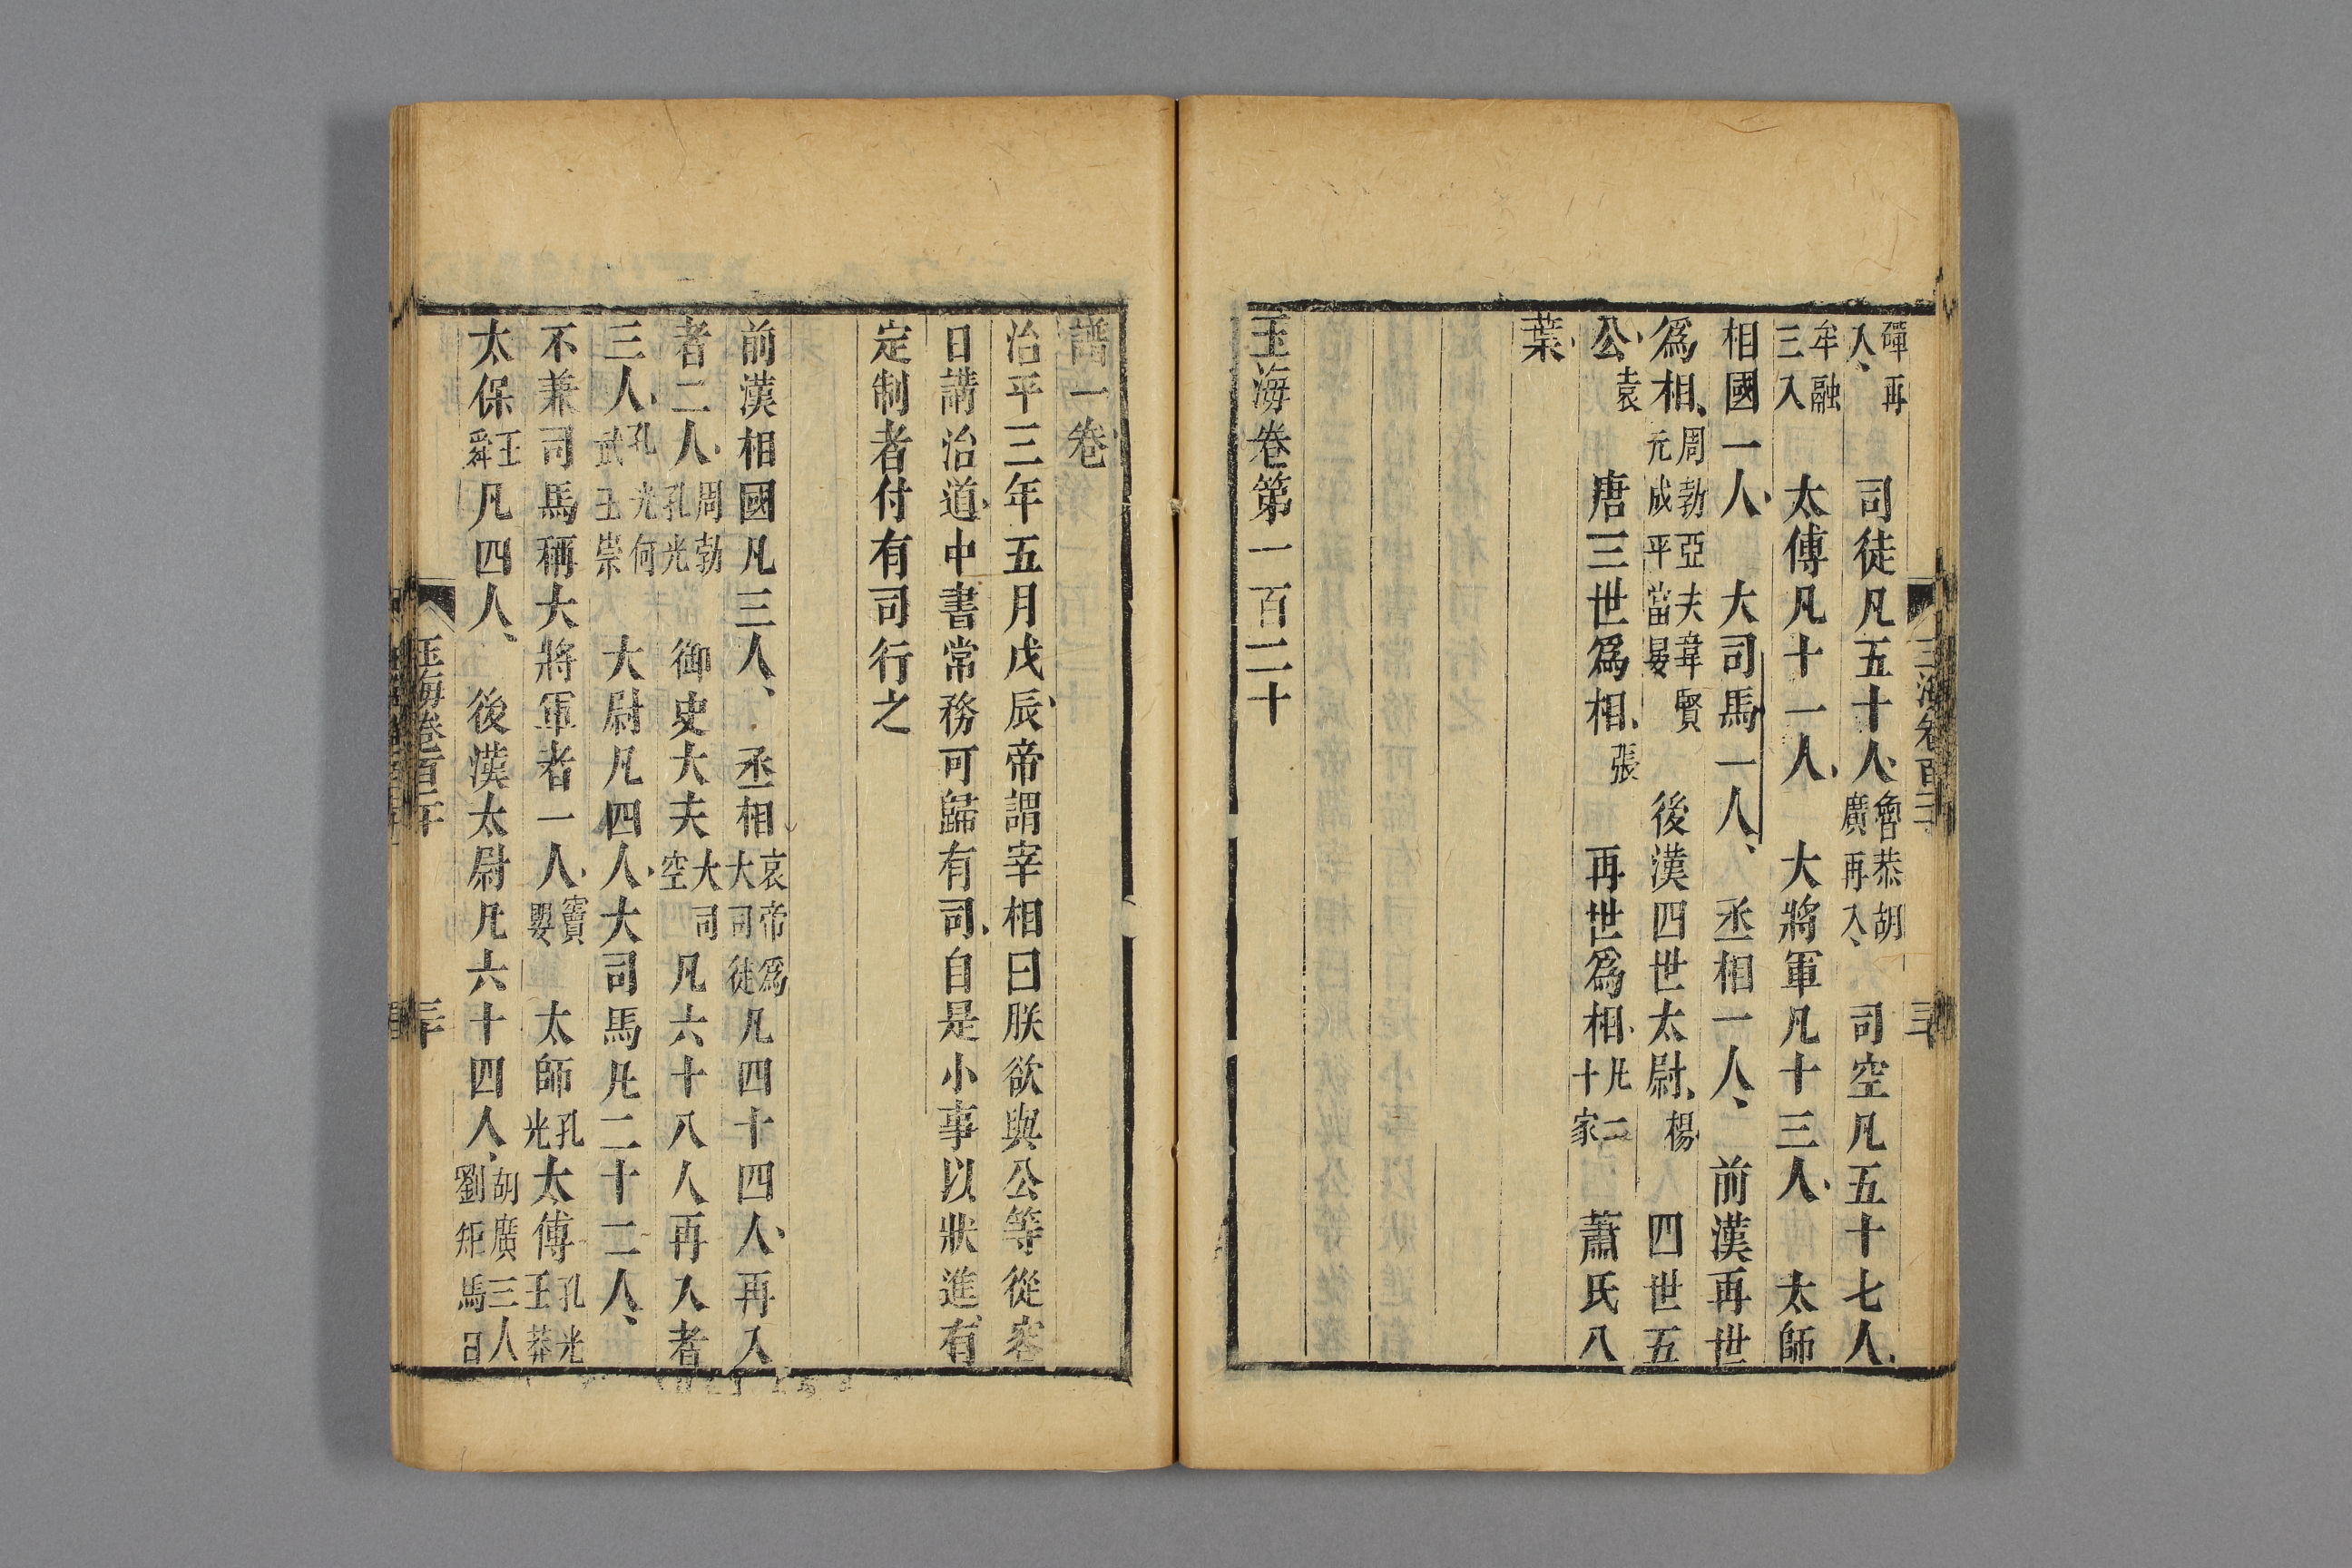 磾再入司徒凡五十人魯恭胡廣再入司空凡五十七人
牟融三入太傅凡十一人大將軍凡十三人太師
相國一人大司馬一人丞相一人前漢再世
爲相周勃亞夫韋賢元成平當晏後漢四世太尉楊四世五
公袁唐三世爲相張再世爲相凡二十家蕭氏八
葉
玉海卷第一百二十
譜一卷
治平三年五月戊辰帝謂宰相曰朕欲與公等從容
日講治道中書常務可歸有司自是小事以狀進有
定制者付有司行之
前漢相國凡三人丞相哀帝爲大司徒凡四十四人再入
者二人周勃孔光御史大夫大司空凡六十八人再入者
三人孔光何武王崇大尉凡四人大司馬凡二十二人
不兼司馬稱大將軍者一人竇嬰太師孔光太傅孔光王莽
太保王舜凡四人後漢太尉凡六十四人胡廣三人劉矩馬日
玉海卷百二十 三十